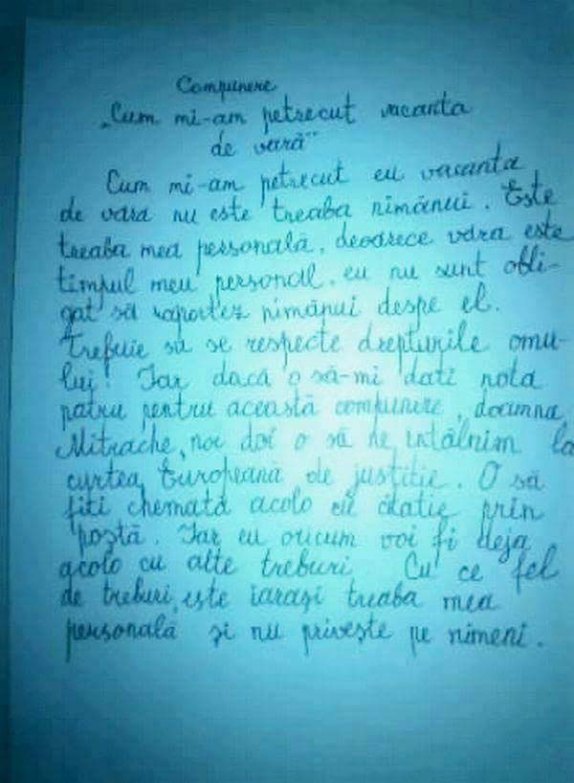 Compunere
„Cum mi-am petrecut vacanta
de vară”
Cum mi-am petrecut eu vacanta
de vara nu este treaba nimănui. Este
treaba mea personală, deoarece vara este
timpul meu personal, eu nu sunt obli-
gat să raportez nimănui despe el.
Trebuie să se respecte drepturile omu-
lui! Iar dacă o să-mi dati nota
patru pentru această compunere, doamna
Mitrache, noi doi o să ne întâlnim la
curtea Europeană de justitie. O să
fiti chemată acolo cu citatie prin
postă. Iar eu oricum voi fi deja
acolo cu alte treburi. Cu ce fel
de treburi, este iarași treaba mea
personală și nu privește pe nimeni.